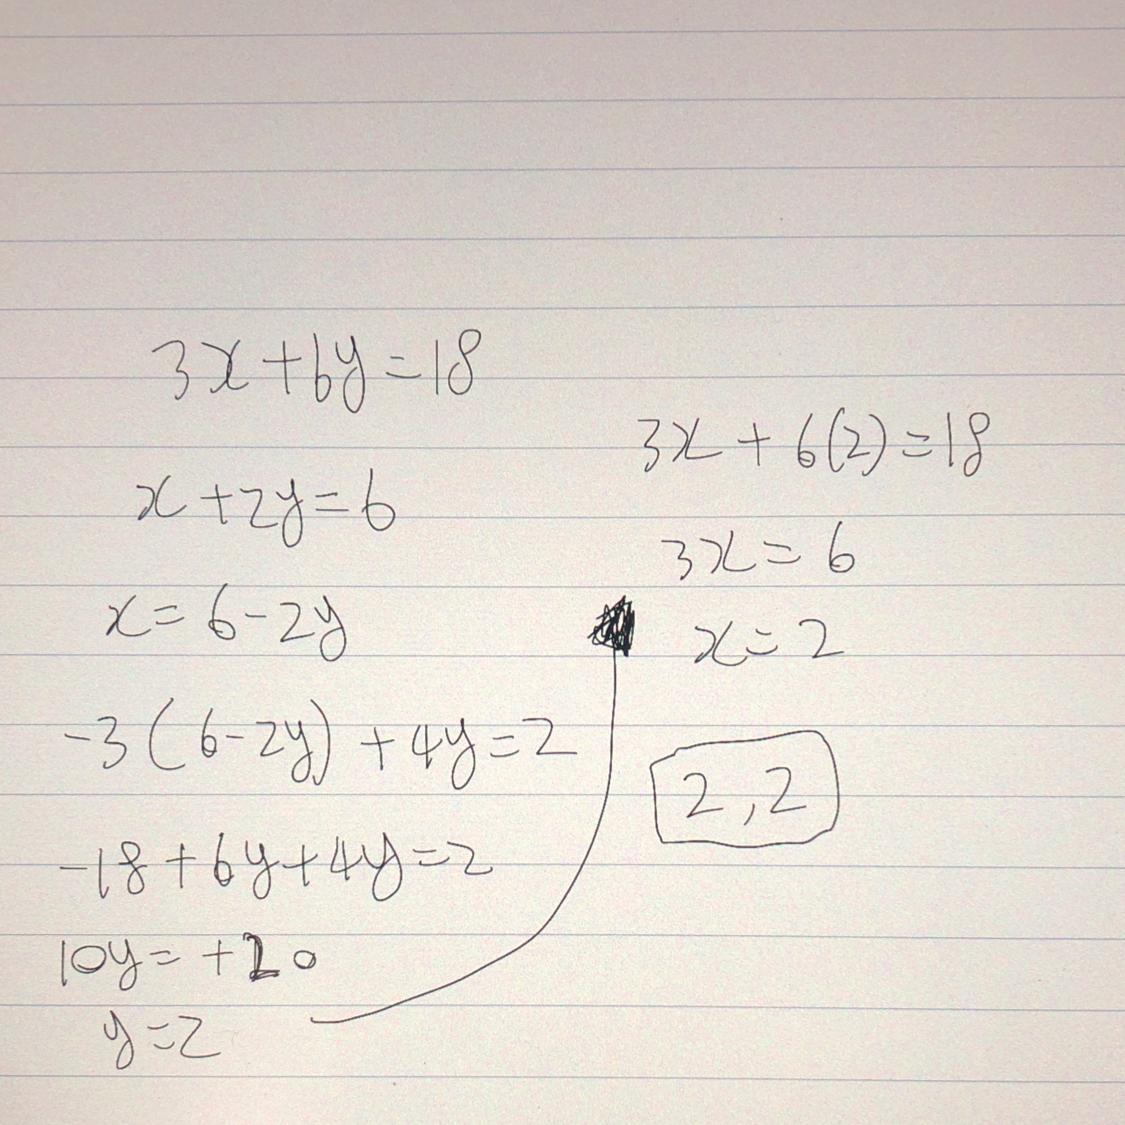 3x+6y=18
x+2y=6
x=6-2y
-3(6-2y)+4y=2
-18+6y+4y=2
10y=+20
y=2
3x+6(2)=18
3x=6
x=2
2,2